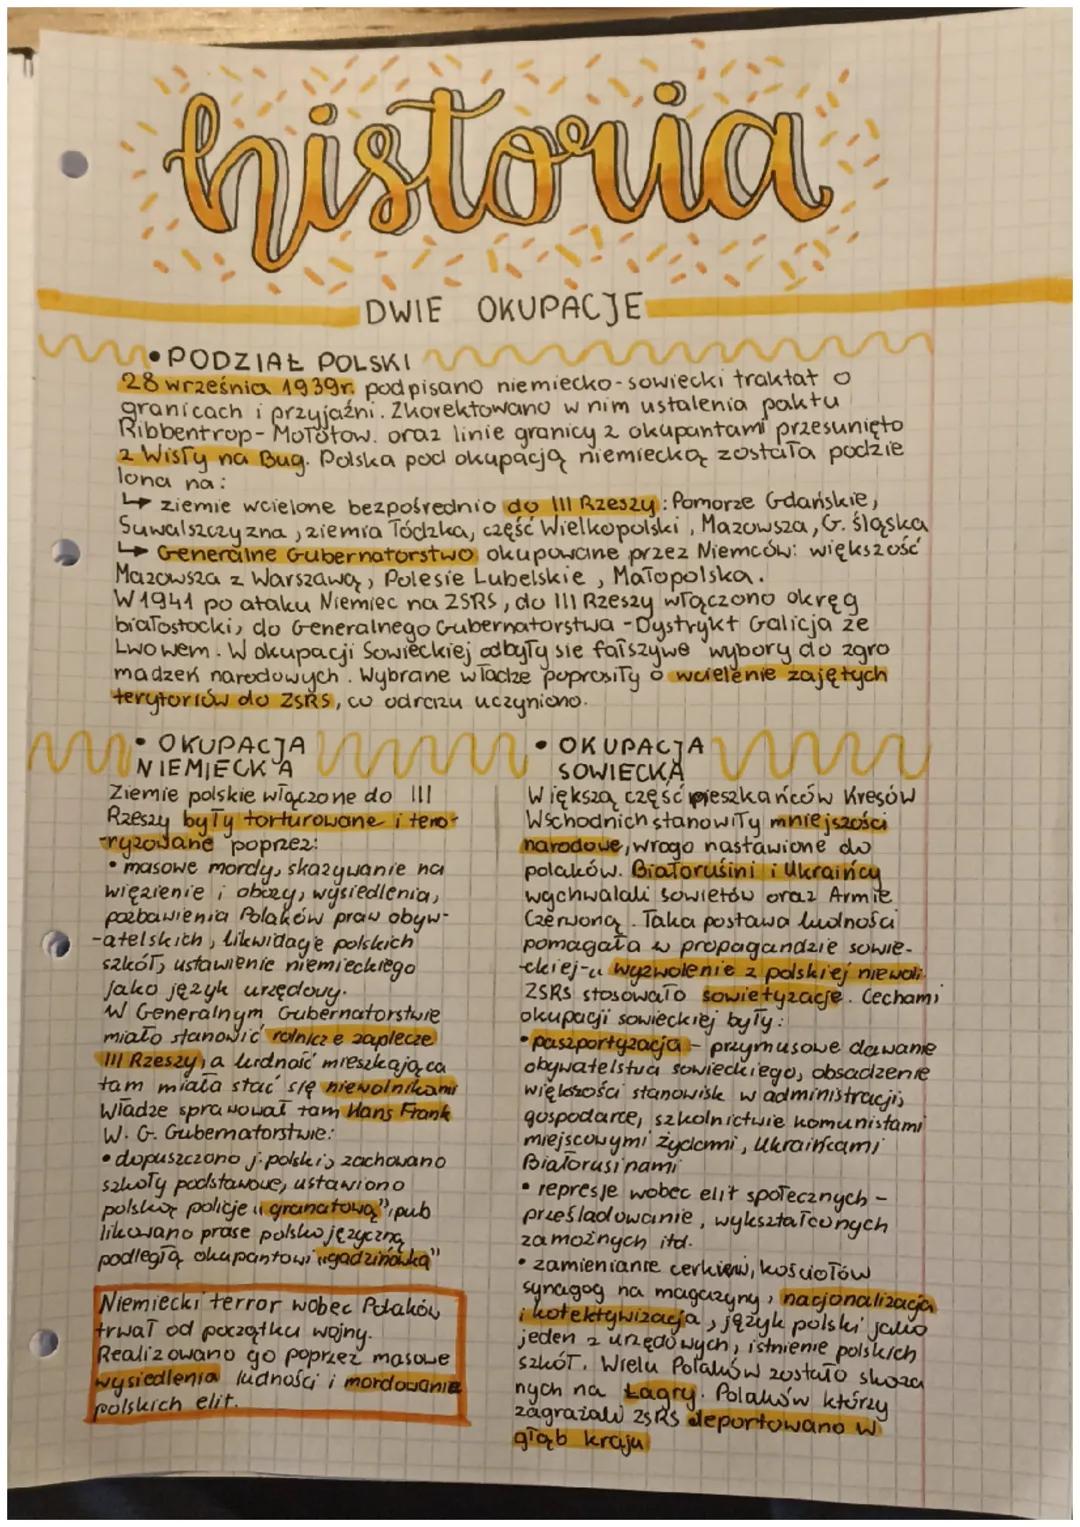 historia
DWIE OKUPACJE
• PODZIAŁ POLSKI
28 września 1939r. podpisano niemiecko-sowiecki traktat o
granicach i przyjaźni. Zkorektowano w nim ustalenia paktu
Ribbentrop-Mołotow. oraz linie granicy z okupantami przesunięto
z Wisły na Bug. Polska pod okupacją niemiecką została podzie
lona na:
↳ ziemie wcielone bezpośrednio do III Rzeszy: Pomorze Gdańskie,
Suwalszczyzna, ziemia łódzka, część Wielkopolski, Mazowsza, G. Śląska
↳ Generalne Gubernatorstwo okupowane przez Niemców: większość
Mazowsza z Warszawą, Polesie Lubelskie, Małopolska.
W 1941 po ataku Niemiec na ZSRS, do III Rzeszy włączono okręg
białostocki, do Generalnego Gubernatorstwa - Dystrykt Galicja ze
Lwowem. W okupacji Sowieckiej odbyły sie fałszywe wybory do zgro
madzeń narodowych. Wybrane władze poprosiły o wcielenie zajętych
terytoriów do ZSRS, co odrazu uczyniono.
• OKUPACJA
NIEMIECKA
Ziemie polskie włączone do III
Rzeszy były torturowane i terro-
-ryzowane poprzez:
• masowe mordy, skazywanie na
więzienie i obozy, wysiedlenia,
pozbawienia Polaków praw obyw-
-atelskich, likwidacje polskich
szkół, ustawienie niemieckiego
jako język urzędowy.
W Generalnym Gubernatorstwie
miało stanowić rolnicze zaplecze
III Rzeszy, a ludność mieszkająca
tam miała stać się niewolnikami
Władze sprawował tam Hans Frank
W. G. Gubernatorstwie:
• dopuszczono j. polski, zachowano
szkoły podstawowe, ustawiono
polską policje "granatową", pub
likowano prase polskojęzyczną
podległą okupantowi "gadzinówka"
Niemiecki terror wobec Polaków
trwał od początku wojny.
Realizowano go poprzez masowe
wysiedlenia ludności i mordowanie
polskich elit.
• OKUPACJA
SOWIECKA
Większą część mieszkańców Kresów
Wschodnich stanowiły mniejszości
narodowe, wrogo nastawione do
polaków. Białorusini i Ukraińcy
wychwalali sowietów oraz Armie
Czerwoną. Taka postawa ludności
pomagała w propagandzie sowie-
-ckiej-" wyzwolenie z polskiej niewoli.
ZSRS stosowało sowietyzacje. Cechami
okupacji sowieckiej były:
• paszportyzacja - przymusowe dawanie
obywatelstwa sowieckiego, obsadzenie
większości stanowisk w administracji,
gospodarce, szkolnictwie komunistami
miejscowymi żydami, Ukraińcami
Białorusinami
• represje wobec elit społecznych -
prześladowanie, wykształconych
zamożnych itd.
• zamienianie cerkiew, kościołów
synagog na magazyny, nacjonalizacja
i kolektywizacja, język polski jako
jeden z urzędowych, istnienie polskich
szkół. Wielu Polaków zostało skaza
nych na Łagry. Polaków którzy
zagrażali ZSRS deportowano w
głąb kraju